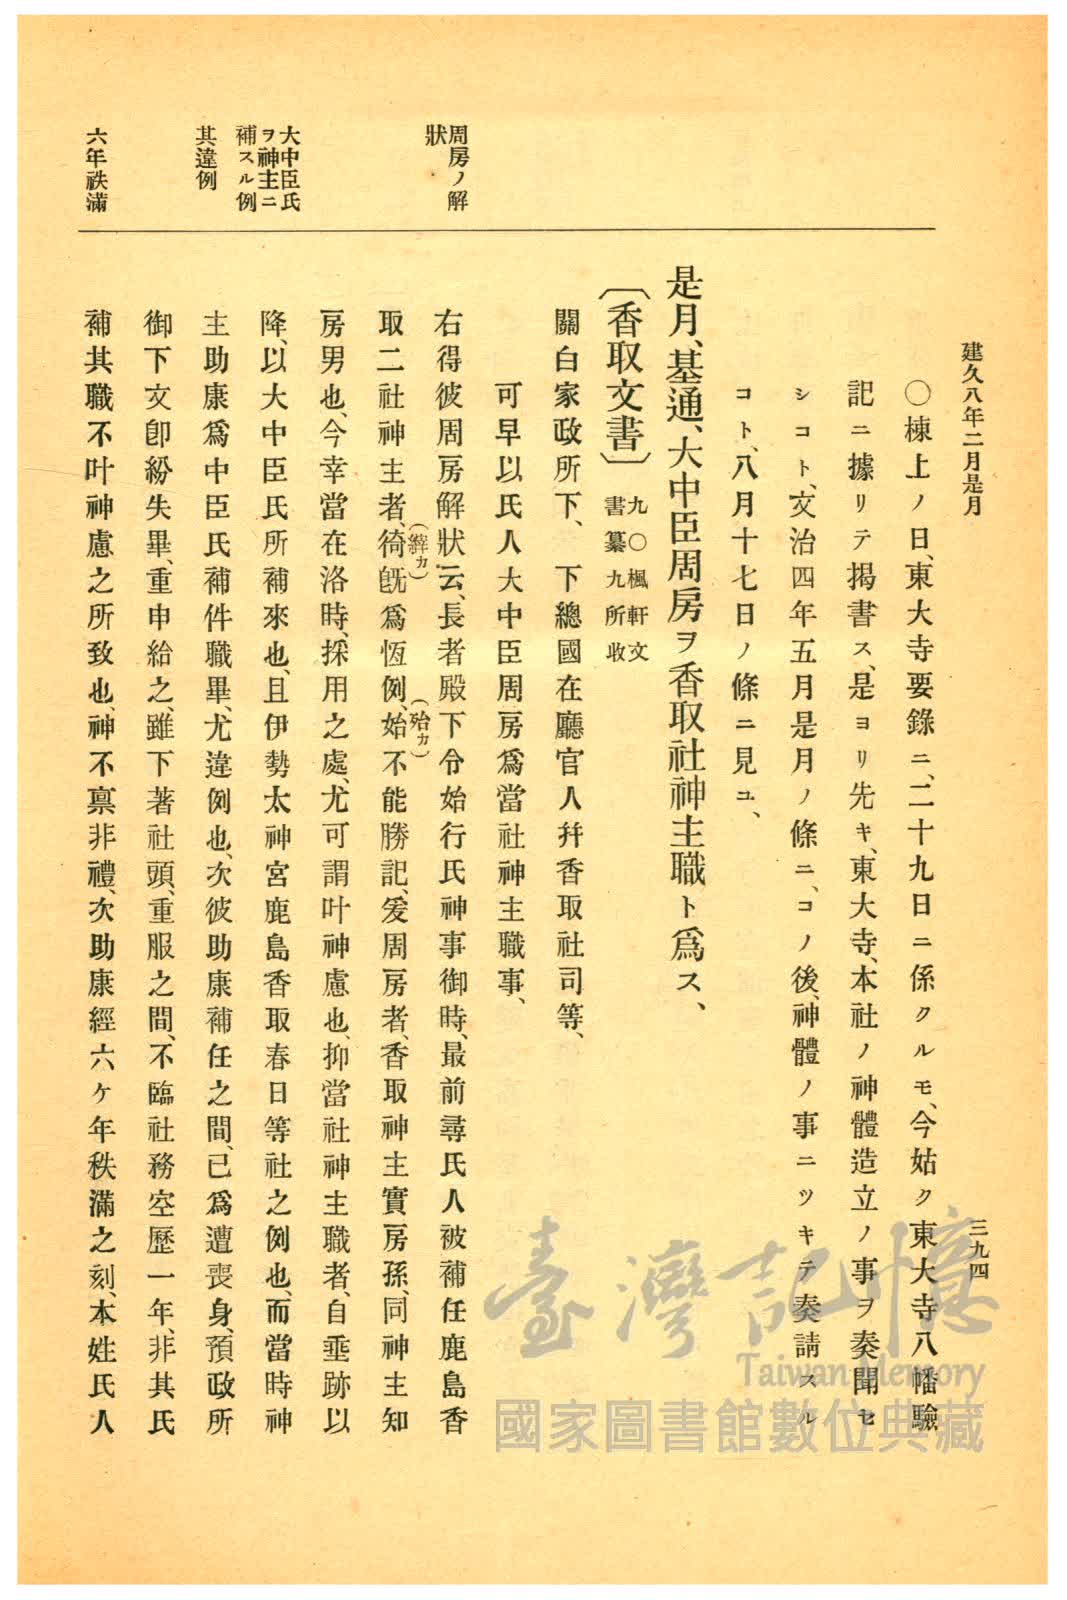 建久八年二月是月
三九四
〇棟上ノ日、東大寺要錄ニ、二十九日ニ係クルモ、今姑ク東大寺八幡驗
記ニ據リテ揭書ス、是ヨリ先キ、東大寺、本社ノ神體造立ノ事ヲ奏聞セ
シコト、文治四年五月是月ノ條ニ、コノ後、神體ノ事ニツキテ奏請スル
コト、八月十七日ノ條ニ見ユ、
是月、基通、大中臣周房ヲ香取社神主職ト爲ス、
〔香取文書〕九〇楓軒文
書纂九所收
關白家政所下、下總國在廳官人幷香取社司等、
可早以氏人大中臣周房爲當社神主職事、
周房ノ解
狀
右得彼周房解狀云、長者殿下令始行氏神事御時、最前尋氏人被補任鹿島香
取二社神主者、徛旣爲恆例、始不能勝記、爰周房者、香取神主實房孫、同神主知
(縡カ)
(殆カ)
房男也、今幸當在洛時、採用之處、尤可謂叶神慮也、抑當社神主職者、自垂跡以
大中臣氏
ヲ神主ニ
補スル例
降、以大中臣氏所補來也、且伊勢太神宮鹿島香取春日等社之例也、而當時神
其違例
主助康爲中臣氏補件職畢、尤違例也、次彼助康補任之間、已爲遭喪身、預政所
御下文卽紛失畢、重申給之、雖下著社頭、重服之間、不臨社務空歷一年、非其氏
六年祑滿
補其職不叶神慮之所致也、神不禀非禮、次助康經六ケ年秩滿之刻、本姓氏人
臺灣記憶
Taiwan Memory
國家圖書館數位典藏